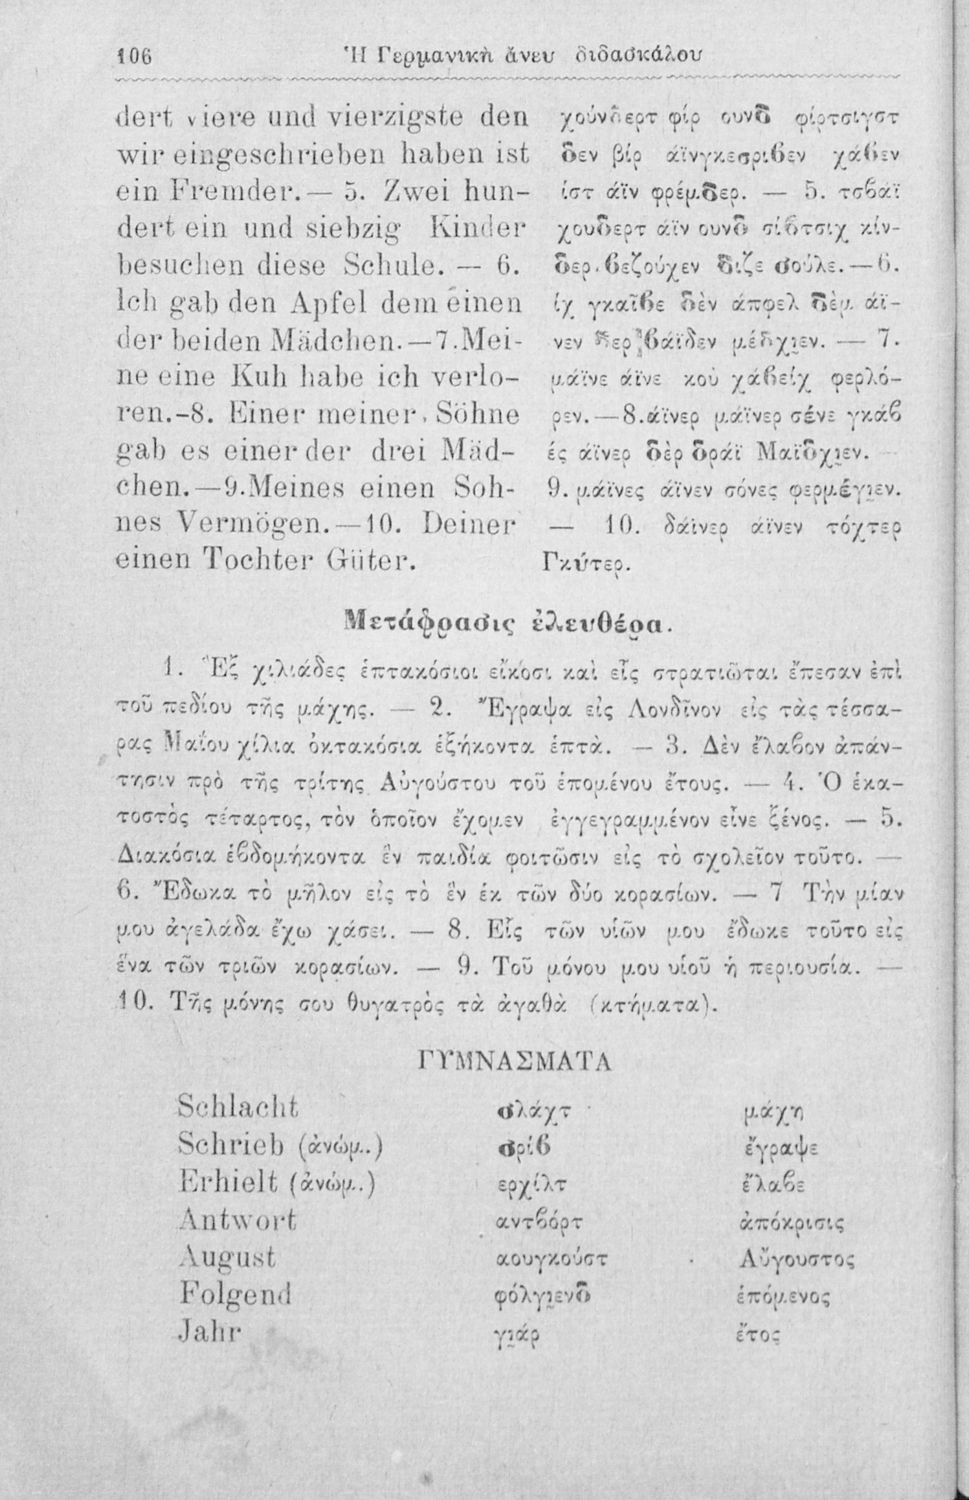 106
Ἡ Γερμανικὴ ἄνευ διδασκάλου
dert viere und vierzigste den
wir eingeschrieben haben ist
ein Fremder.— 5. Zwei hun-
dert ein und siebzig Kinder
besuchen diese Schule. — 6.
Ich gab den Apfel dem einen
der beiden Mädchen.—7.Mei-
ne eine Kuh habe ich verlo-
ren.-8. Einer meiner, Söhne
gab es einer der drei Mäd-
chen.—9.Meines einen Soh-
nes Vermögen.—10. Deiner
einen Tochter Güter.
χούνδερτ φίρ ουνδ φίρτσιγστ
δεν βίρ άϊνγκεσριβεν χάβεν
ίστ άϊν φρέμδερ. — 5. τσβάϊ
χουδερτ άϊν ουνδ σίβτσιχ κίν-
δερ.βεζούχεν διζε σούλε.—6.
ίχ γκαῖβε δὲν άπφελ δὲμ άϊ-
νεν δερ βάϊδεν μέδχιεν. — 7.
μάϊνε άϊνε κοὺ χάβεἰχ φερλό-
ρεν.—8.άϊνερ μάϊνερ σένε γκάβ
ές άϊνερ δὲρ δράϊ Μαϊδχιεν.
9. μάϊνες άϊνεν σόνες φερμέγιεν.
— 10. δάϊνερ άϊνεν τόχτερ
Γκύτερ.
Μετάφρασις ἐλευθέρα.
1. Ἓξ χιλιάδες ἑπτακόσιοι εἴκοσι καὶ εἷς στρατιῶται ἔπεσαν ἐπὶ
τοῦ πεδίου τῆς μάχης. — 2. Ἔγραψα εἰς Λονδῖνον εἰς τὰς τέσσα-
ρας Μαΐου χίλια ὀκτακόσια ἑξήκοντα ἑπτὰ. — 3. Δὲν ἔλαβον ἀπάν-
τησιν πρὸ τῆς τρίτης Αὐγούστου τοῦ ἑπομένου ἔτους. — 4. Ὁ ἑκα-
τοστὸς τέταρτος, τὸν ὁποῖον ἔχομεν ἐγγεγραμμένον εἶνε ξένος. — 5.
Διακόσια ἑβδομήκοντα ἓν παιδία φοιτῶσιν εἰς τὸ σχολεῖον τοῦτο. —
6. Ἔδωκα τὸ μῆλον εἰς τὸ ἓν ἐκ τῶν δύο κορασίων. — 7 Τὴν μίαν
μου ἀγελάδα ἔχω χάσει. — 8. Εἷς τῶν υἱῶν μου ἔδωκε τοῦτο εἰς
ἕνα τῶν τριῶν κορασίων. — 9. Τοῦ μόνου μου υἱοῦ ἡ περιουσία. —
10. Τῆς μόνης σου θυγατρὸς τὰ ἀγαθὰ (κτήματα).
ΓΥΜΝΑΣΜΑΤΑ
Schlacht σλάχτ μάχη
Schrieb (ἀνώμ..) σρίβ ἔγραψε
Erhielt (ἀνώμ..) ερχίλτ ἔλαβε
Antwort αντβόρτ ἀπόκρισις
August αουγκούστ Αὔγουστος
Folgend φόλγιενδ ἑπόμενος
Jahr γιάρ ἔτος